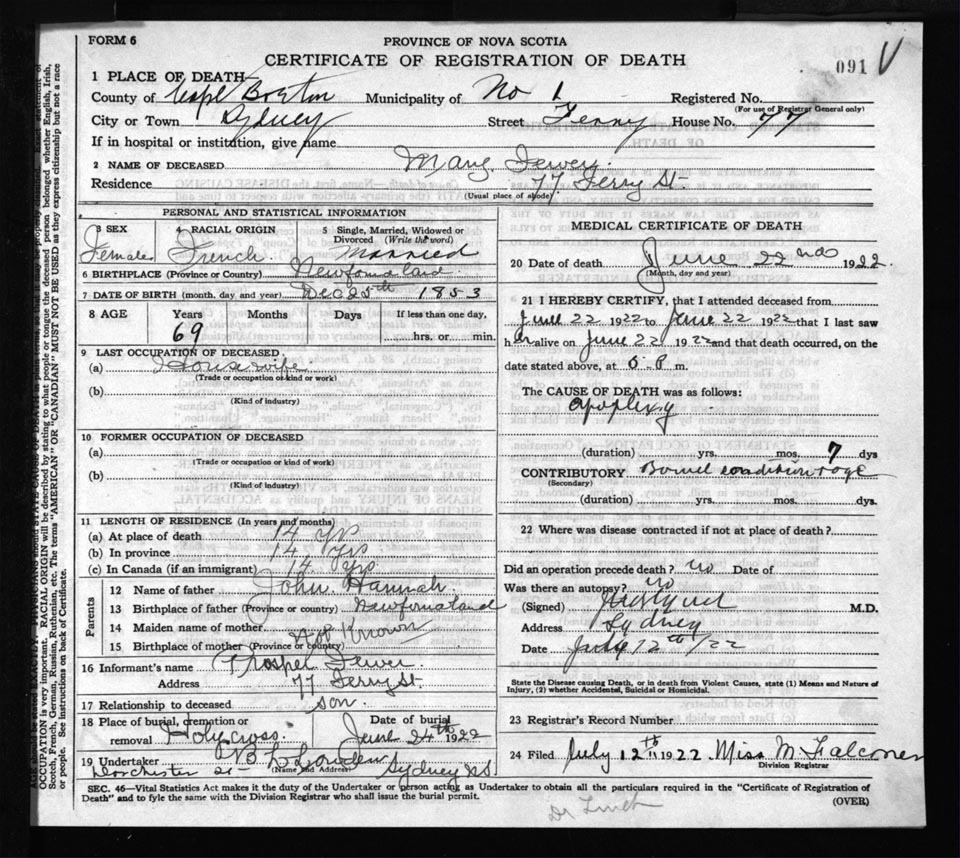 FORM 6
PROVINCE OF NOVA SCOTIA
CERTIFICATE OF REGISTRATION OF DEATH
091
1 PLACE OF DEATH—
County of Cape Breton Municipality of No 1 Registered No.
(For use of Registrar General only)
City or Town Sydney Street Ferry House No. 77
If in hospital or institution, give name
2 NAME OF DECEASED Mary
Residence 77 Ferry St.
(Usual place of abode)
PERSONAL AND STATISTICAL INFORMATION
3 SEX Female
4 RACIAL ORIGIN French
5 Single, Married, Widowed or Divorced (Write the word) Married
6 BIRTHPLACE (Province or Country) Newfoundland
7 DATE OF BIRTH (month, day and year) Dec 25th 1853
8 AGE Years Months Days If less than one day,
69 hrs. or min.
9 LAST OCCUPATION OF DECEASED
(a) Housewife
(Trade or occupation or kind or work)
(b)
(Kind of industry)
10 FORMER OCCUPATION OF DECEASED
(a)
(Trade or occupation or kind of work)
(b)
(Kind of industry)
11 LENGTH OF RESIDENCE (In years and months)
(a) At place of death 14 yrs
(b) In province 14 yrs
(c) In Canada (if an immigrant) 14 yrs
Parents
12 Name of father John Hannah
13 Birthplace of father (Province or country) Newfoundland
14 Maiden name of mother
15 Birthplace of mother (Province or country) Not Known
16 Informant's name
Address 77 Ferry St.
17 Relationship to deceased son.
18 Place of burial, cremation or removal Holy cross
Date of burial June 24th 1922
19 Undertaker
(Name and Address)
Dorchester St Sydney NS
MEDICAL CERTIFICATE OF DEATH
20 Date of death June 22nd 1922.
(Month, day and year)
21 I HEREBY CERTIFY, that I attended deceased from
June 22 1922 to June 22 1922 that I last saw
her alive on June 22 1922 and that death occurred, on the
date stated above, at P m.
The CAUSE OF DEATH was as follows:
apoplexy
(duration) yrs. mos. 7 dys
CONTRIBUTORY Bowel condition
(Secondary)
(duration) yrs. mos. dys.
22 Where was disease contracted if not at place of death?
Did an operation precede death? no Date of
Was there an autopsy? no
(Signed) M.D.
Address Sydney
Date July 12th/22
State the Disease causing Death, or in death from Violent Causes, state (1) Means and Nature of
Injury, (2) whether Accidental, Suicidal or Homicidal.
23 Registrar's Record Number
24 Filed July 12th 1922 Miss M. Falconer
Division Registrar
SEC. 46—Vital Statistics Act makes it the duty of the Undertaker or person acting as Undertaker to obtain all the particulars required in the "Certificate of Registration of
Death" and to fyle the same with the Division Registrar who shall issue the burial permit.
(OVER)
Dr Lynch
OCCUPATION is very important. RACIAL ORIGIN will be described by stating to what people or tongue the deceased person belonged whether English, Irish,
Scotch, French, German, Russian, Ruthenian, etc. The terms "AMERICAN" OR "CANADIAN" MUST NOT BE USED as they express citizenship but not a race
or people. See instructions on back of Certificate.